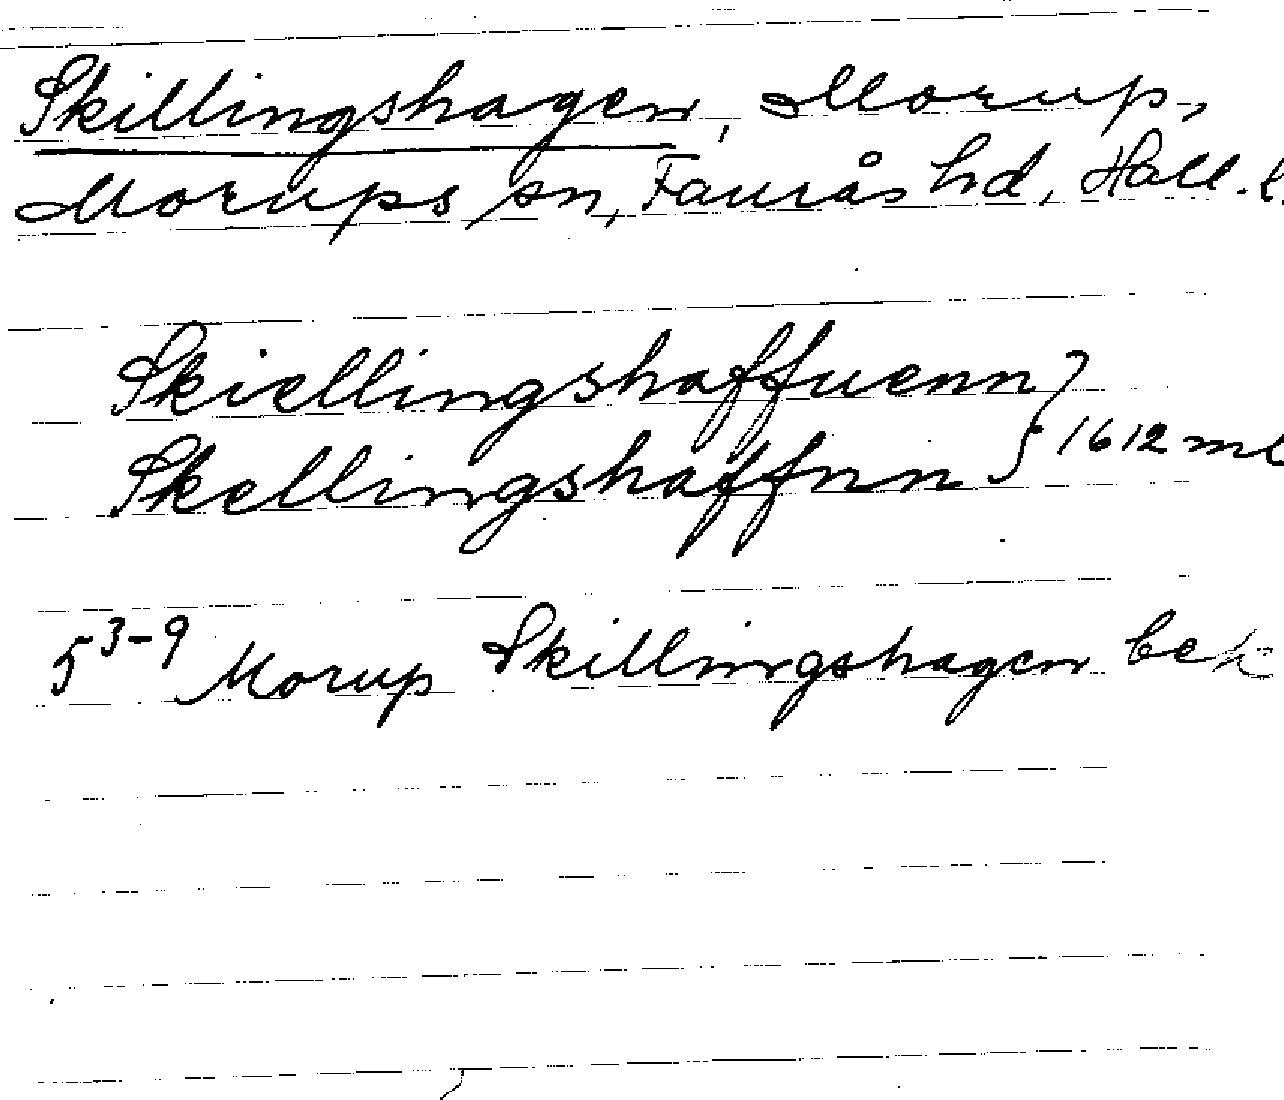 Skillingshagen, Morup,
Morups sn, Faurås hd, Hall. l.
Skiellingshaffuenn
Skellingshaffnn } 1612 ml
5 3-9 Morup Skillingshagen bek